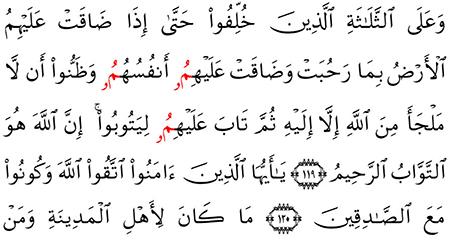 وَعَلَى ٱلثَّلَٰثَةِ ٱلَّذِينَ خُلِّفُوا۟ حَتَّىٰٓ إِذَا ضَاقَتْ عَلَيْهِمُ
ٱلْأَرْضُ بِمَا رَحُبَتْ وَضَاقَتْ عَلَيْهِمُۥٓ أَنفُسُهُمُۥ وَظَنُّوٓا۟ أَن لَّا
مَلْجَأَ مِنَ ٱللَّهِ إِلَّآ إِلَيْهِ ثُمَّ تَابَ عَلَيْهِمُۥ لِيَتُوبُوٓا۟ۚ إِنَّ ٱللَّهَ هُوَ
ٱلتَّوَّابُ ٱلرَّحِيمُ ١١٩ يَٰٓأَيُّهَا ٱلَّذِينَ ءَامَنُوا۟ ٱتَّقُوا۟ ٱللَّهَ وَكُونُوا۟
مَعَ ٱلصَّٰدِقِينَ ١٢٠ مَا كَانَ لِأَهْلِ ٱلْمَدِينَةِ وَمَنْ